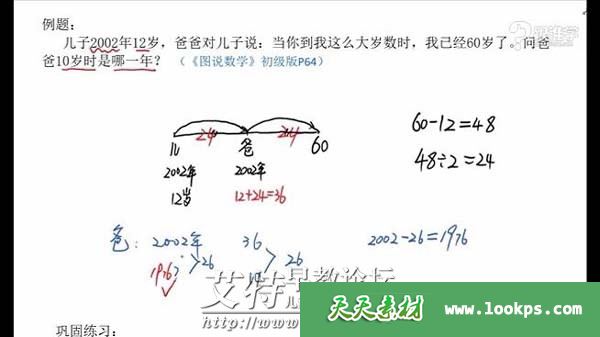 例题:
儿子2002年12岁，爸爸对儿子说：当你到我这么大岁数时，我已经60岁了。问爸
爸10岁时是哪一年？（《图说数学》初级版P64）
24 24
儿 爸 60
2002年 2002年
12岁 12+24=36
60-12=48
48÷2=24
爸：2002年 36
>26 >26
1976? 10
2002-26=1976
艾特早教论坛
http://www.
天天素材 www.lookps.com
巩固练习：